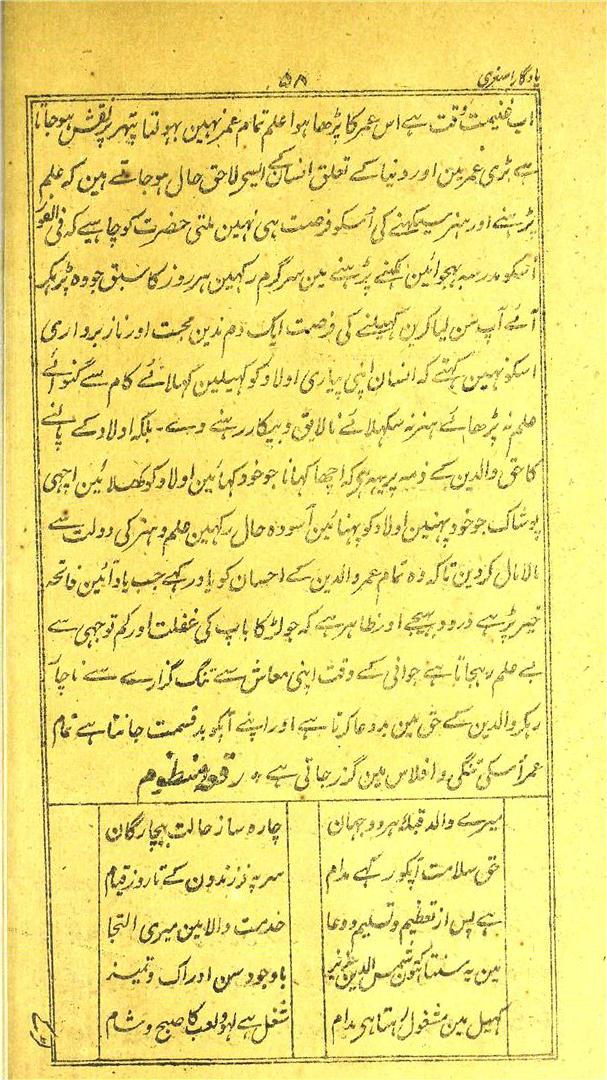 یادگار اصغری
۵۸
اب غنیمت وقت ہے اس عمر کا پڑھا ہوا علم تمام عمر نہین بہولتا پتہر پر نقش ہوجاتا
ہے بڑی عمر مین اور دنیا کے تعلق انسان کے ایسی لاحق حال ہوجاتے ہین کہ علم
پڑہنے اور ہنر سیکہنے کی اُسکو فرصت ہی نہین ملتی حضرت کو چاہیے کہ فی الفور
اُسکو مدرسہ بہجوائین لکہنے پڑہنے مین سرگرم رکہین ہر روز کا سبق جو وہ پڑہکر
آئے آپ سُن لیا کرین کہیلنے کی فرصت ایک دم ندین محبت اور ناز برداری
اسکو نہین کہتے کہ انسان اپنی پیاری اولاد کو کہیلین کہلائے کام سے گنوائے
علم نہ پڑھائے ہنر نہ سکہلائے نالایق و بیکار رہنے دے ۔ بلکہ اولاد کے پالنے
کا حق والدین کے ذمہ پر یہہ ہو کہ اچھا کہانا جو خود کہائین اولاد کو کھلائین اچہی
پوشاک جو خود پہنین اولاد کو پہنائین آسودہ حال رکہین علم و ہنر کی دولت سے
مالامال کر دین تاکہ وہ تمام عمر والدین کے احسان کو یاد رکہے جب یاد آئین فاتحہ
خیر پڑہے درود بہیجے اور ظاہر ہے کہ جو لڑکا باپ کی غفلت اور کم توجہی سے
بے علم رہجاتا ہے جوانی کے وقت اپنی معاش سے تنگ گزارے سے ناچار
رہکر والدین کے حق مین بد دعا کرتا ہے اور اپنے آپکو بد قسمت جانتا ہے تمام
عمر اُسکی تنگی و افلاس مین گزر جاتی ہے ٭ رقعہ منظوم
میرے والد قبلۂ ہر دو جہان چارہ ساز حالت بیچارگان
حق سلامت آپکو رکہے مدام سر پہ فرزندون کے تا روز قیام
ہے پس از تعظیم و تسلیم و دعا خدمت والا مین میری التجا
مین یہ سنتا ہون شمس الدین باوجود سن ادراک و تمیز
کہیل مین مشغول رہتا ہی مدام شغل ہے لہو و لعب کا صبح و شام